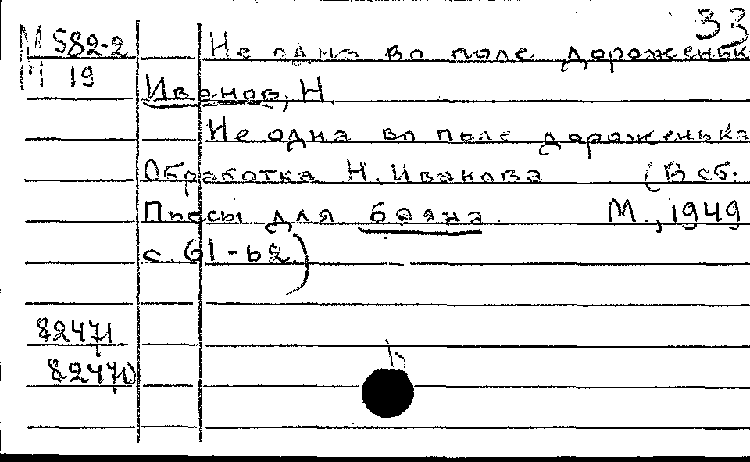 33
М 582-2 Не одна во поле дороженьк
П 19
Иванов, Н.
Не одна во поле дороженька
Обработка Н. Иванова (В сб.
Пьесы для баяна. М., 1949
с. 61-62)
82471
82470